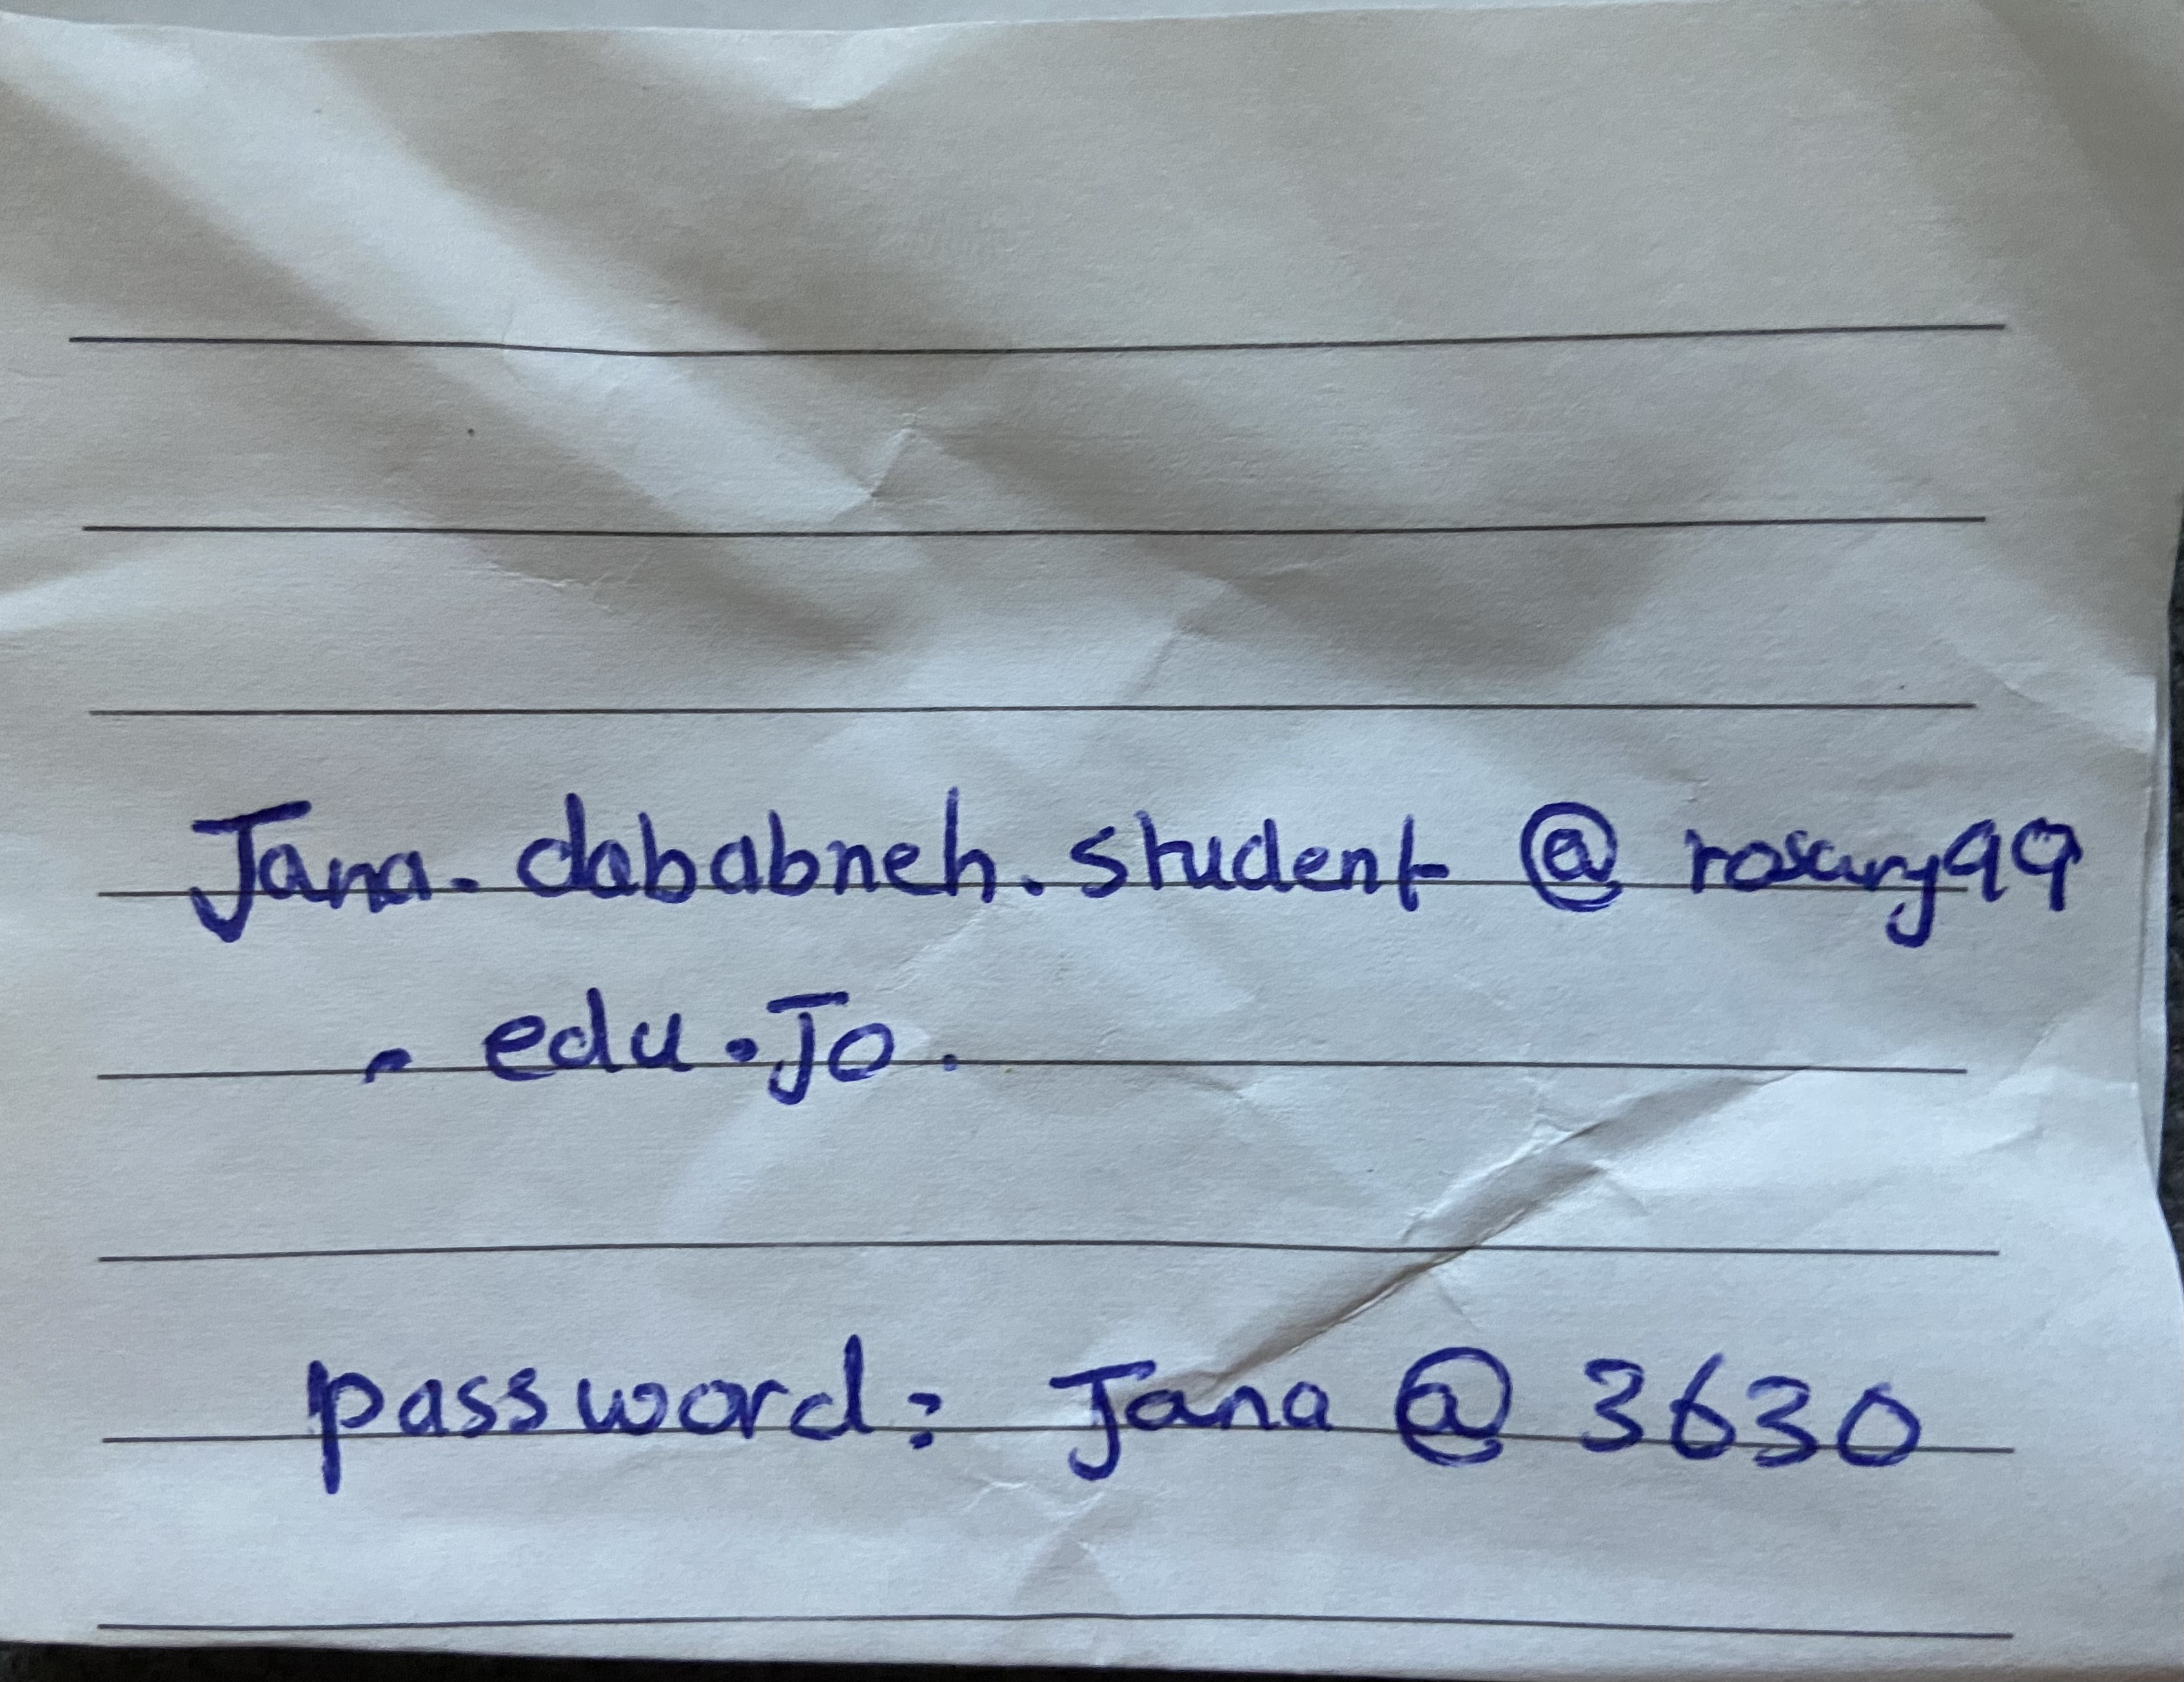 Jana. dababneh. student @ rosary99
. edu . Jo .
password: Jana @ 3630